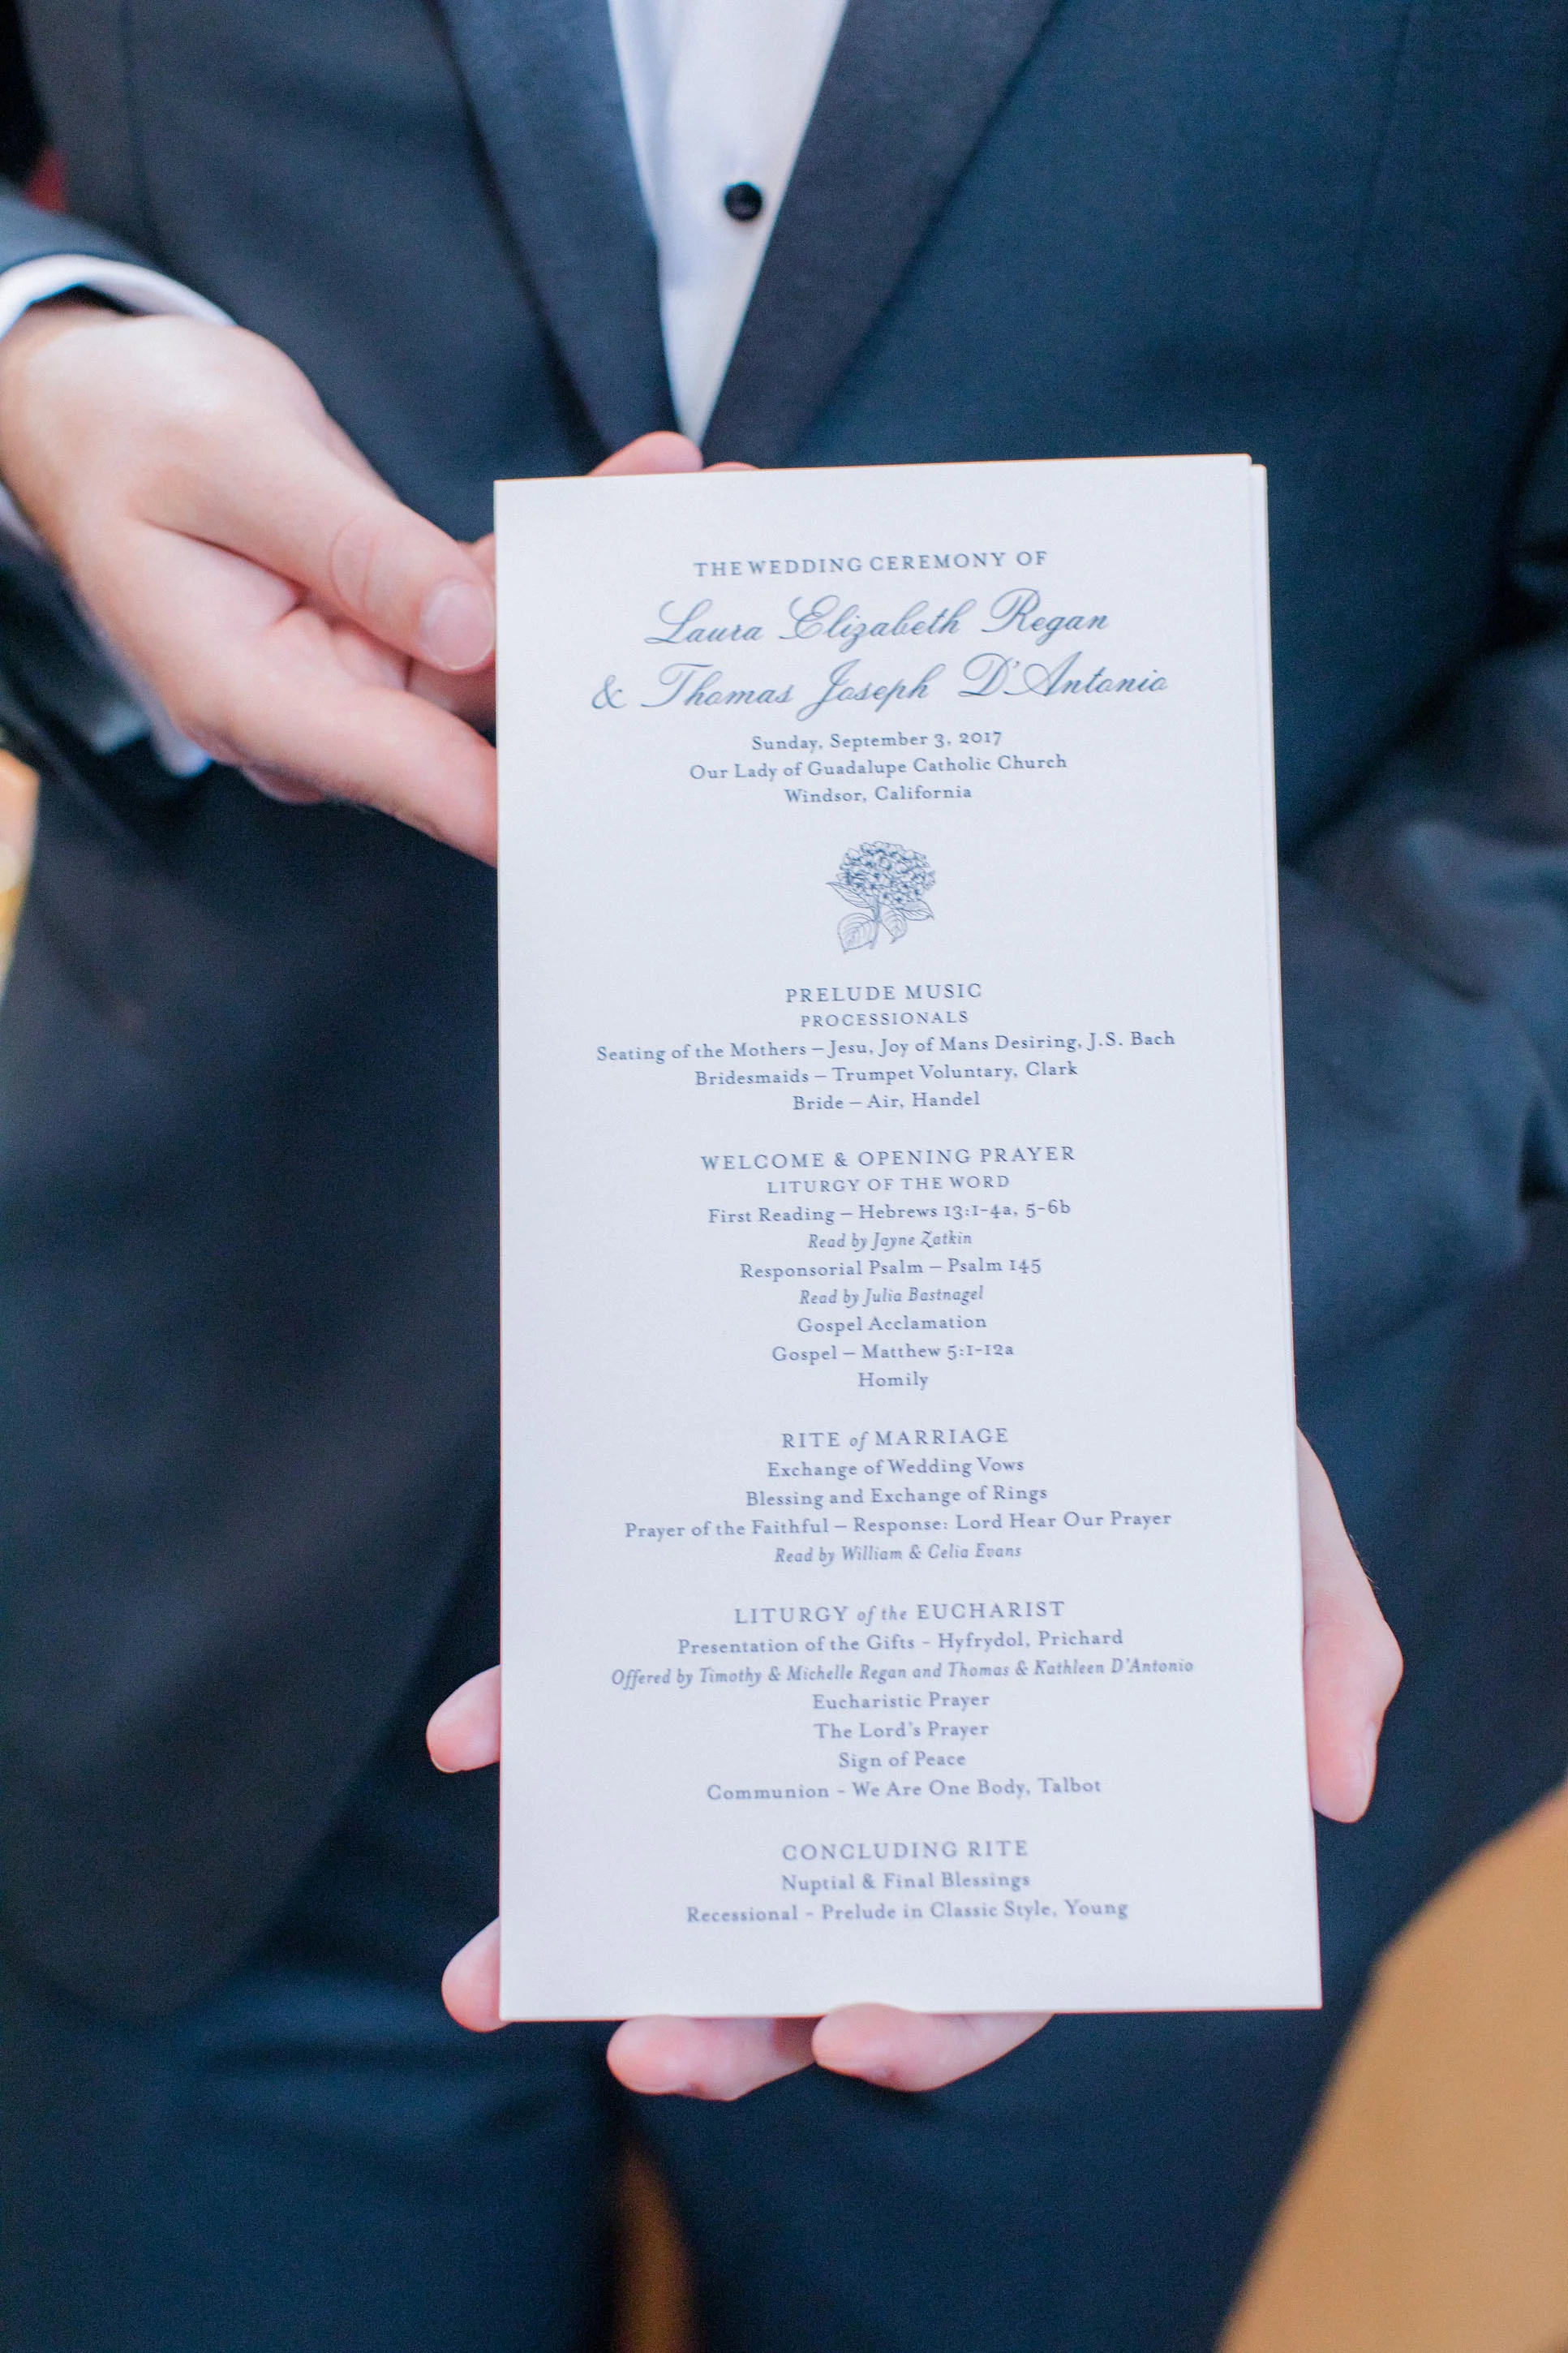 THE WEDDING CEREMONY OF
Laura Elizabeth Regan
& Thomas Joseph D'Antonio
Sunday, September 3, 2017
Our Lady of Guadalupe Catholic Church
Windsor, California
PRELUDE MUSIC
PROCESSIONALS
Seating of the Mothers – Jesu, Joy of Mans Desiring, J.S. Bach
Bridesmaids – Trumpet Voluntary, Clark
Bride – Air, Handel
WELCOME & OPENING PRAYER
LITURGY OF THE WORD
First Reading – Hebrews 13:1-4a, 5-6b
Read by Jayne Zatkin
Responsorial Psalm – Psalm 145
Read by Julia Bastnagel
Gospel Acclamation
Gospel – Matthew 5:1-12a
Homily
RITE of MARRIAGE
Exchange of Wedding Vows
Blessing and Exchange of Rings
Prayer of the Faithful – Response: Lord Hear Our Prayer
Read by William & Celia Evans
LITURGY of the EUCHARIST
Presentation of the Gifts - Hyfrydol, Prichard
Offered by Timothy & Michelle Regan and Thomas & Kathleen D'Antonio
Eucharistic Prayer
The Lord's Prayer
Sign of Peace
Communion - We Are One Body, Talbot
CONCLUDING RITE
Nuptial & Final Blessings
Recessional - Prelude in Classic Style, Young